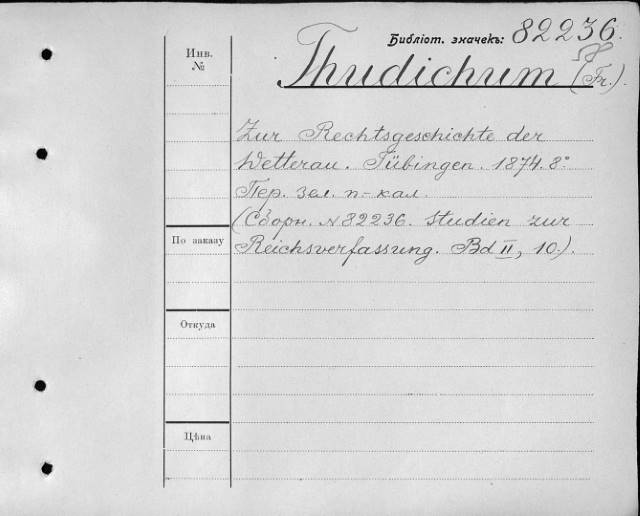 Библіот. значекъ: 82236.
58
Инв.
№
Thudichum (Fr.).
Zur Rechtsgeschichte der
Wetterau. Tübingen. 1874. 8°
Пер. зел. п.-кал.
(Сборн. №82236. Studien zur
Reichsverfassung. Bd II, 10.).
По заказу
Откуда
Цѣна